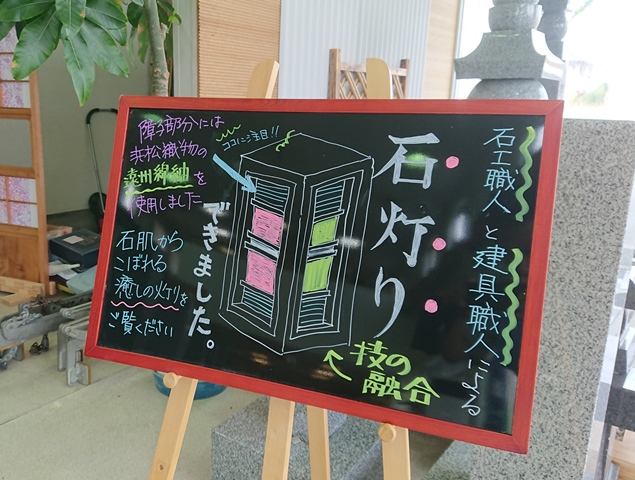 石工職人と建具職人による
石灯り
できました。
技の
融合
ココに注目!!
障子部分には
浜松織物の
遠州綿紬を
使用しました
石肌から
こぼれる
癒しの灯りを
ご覧ください